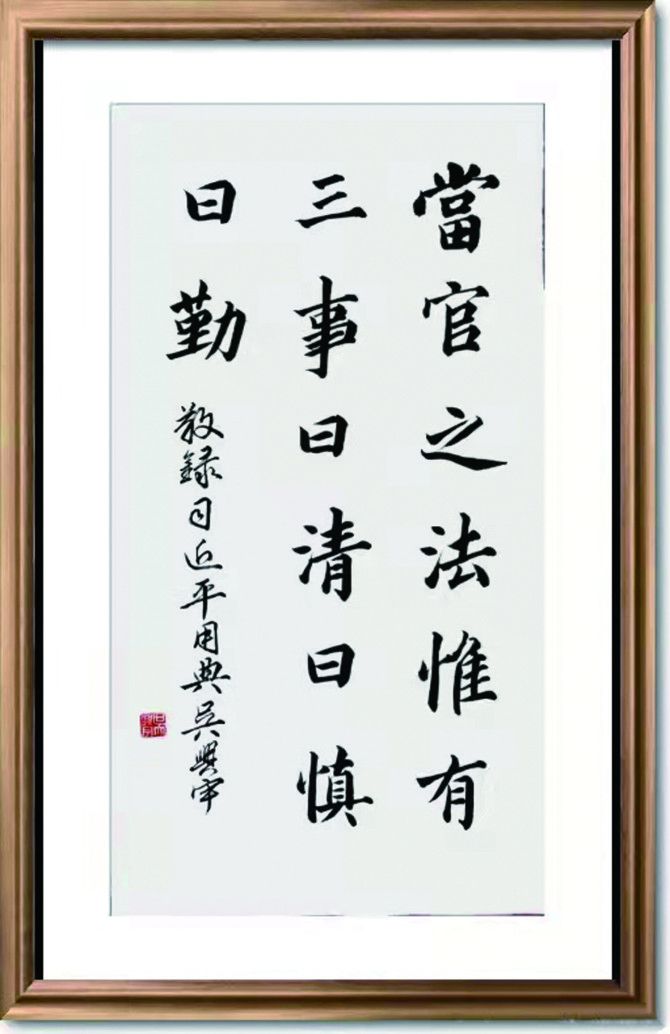 當官之法惟有
三事曰清曰慎
曰勤
敬録习近平用典吳興军